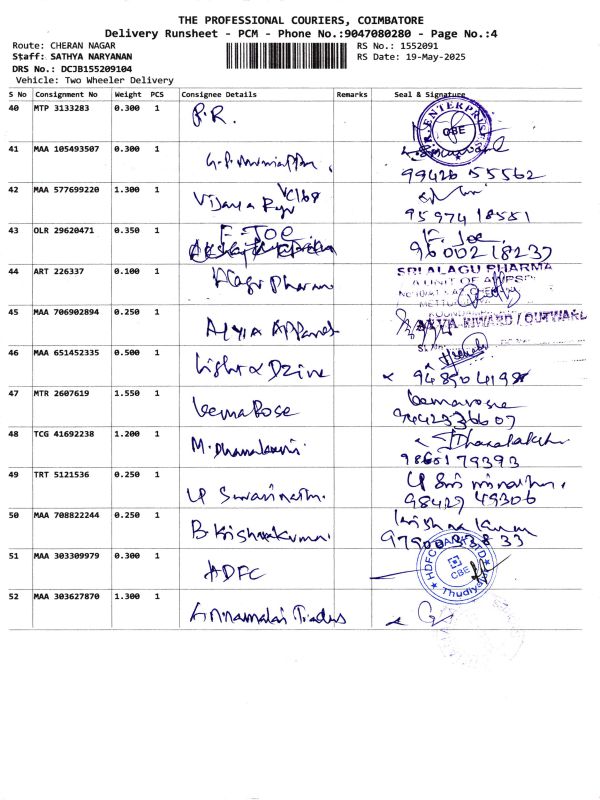 THE PROFESSIONAL COURIERS, COIMBATORE
Delivery Runsheet - PCM - Phone No.:9047080280 - Page No.:4
Route: CHERAN NAGAR
RS No.: 1552091
Staff: SATHYA NARYANAN
RS Date: 19-May-2025
DRS No.: DCJB155209104
Vehicle: Two Wheeler Delivery
S No Consignment No Weight PCS Consignee Details Remarks Seal & Signature
40 MTP 3133283 0.300 1 P.R. ENTERPRIS CBE
41 MAA 105493507 0.300 1
99426 55562
42 MAA 577699220 1.300 1 Vijaya
95974 18551
43 OLR 29620471 0.350 1 F-JOE F. Joe
9600218237
44 ART 226337 0.100 1 Alagu Pharma SRI ALAGU PHARMA
A UNIT OF
45 MAA 706902894 0.250 1 Apparel INWARD / OUTWARD
46 MAA 651452335 0.500 1 Light & Dzine
47 MTR 2607619 1.550 1 Leemarose Leemarose
48 TCG 41692238 1.200 1 M. Dhanalaxmi
9865179393
49 TRT 5121536 0.250 1 UP
98427 49306
50 MAA 708822244 0.250 1 B Krishnakumar Krishna Kumar
9790033833
51 MAA 303309979 0.300 1 HDFC HDFC BANK LTD CBE Thudiyalur
52 MAA 303627870 1.300 1 Annamalai Traders